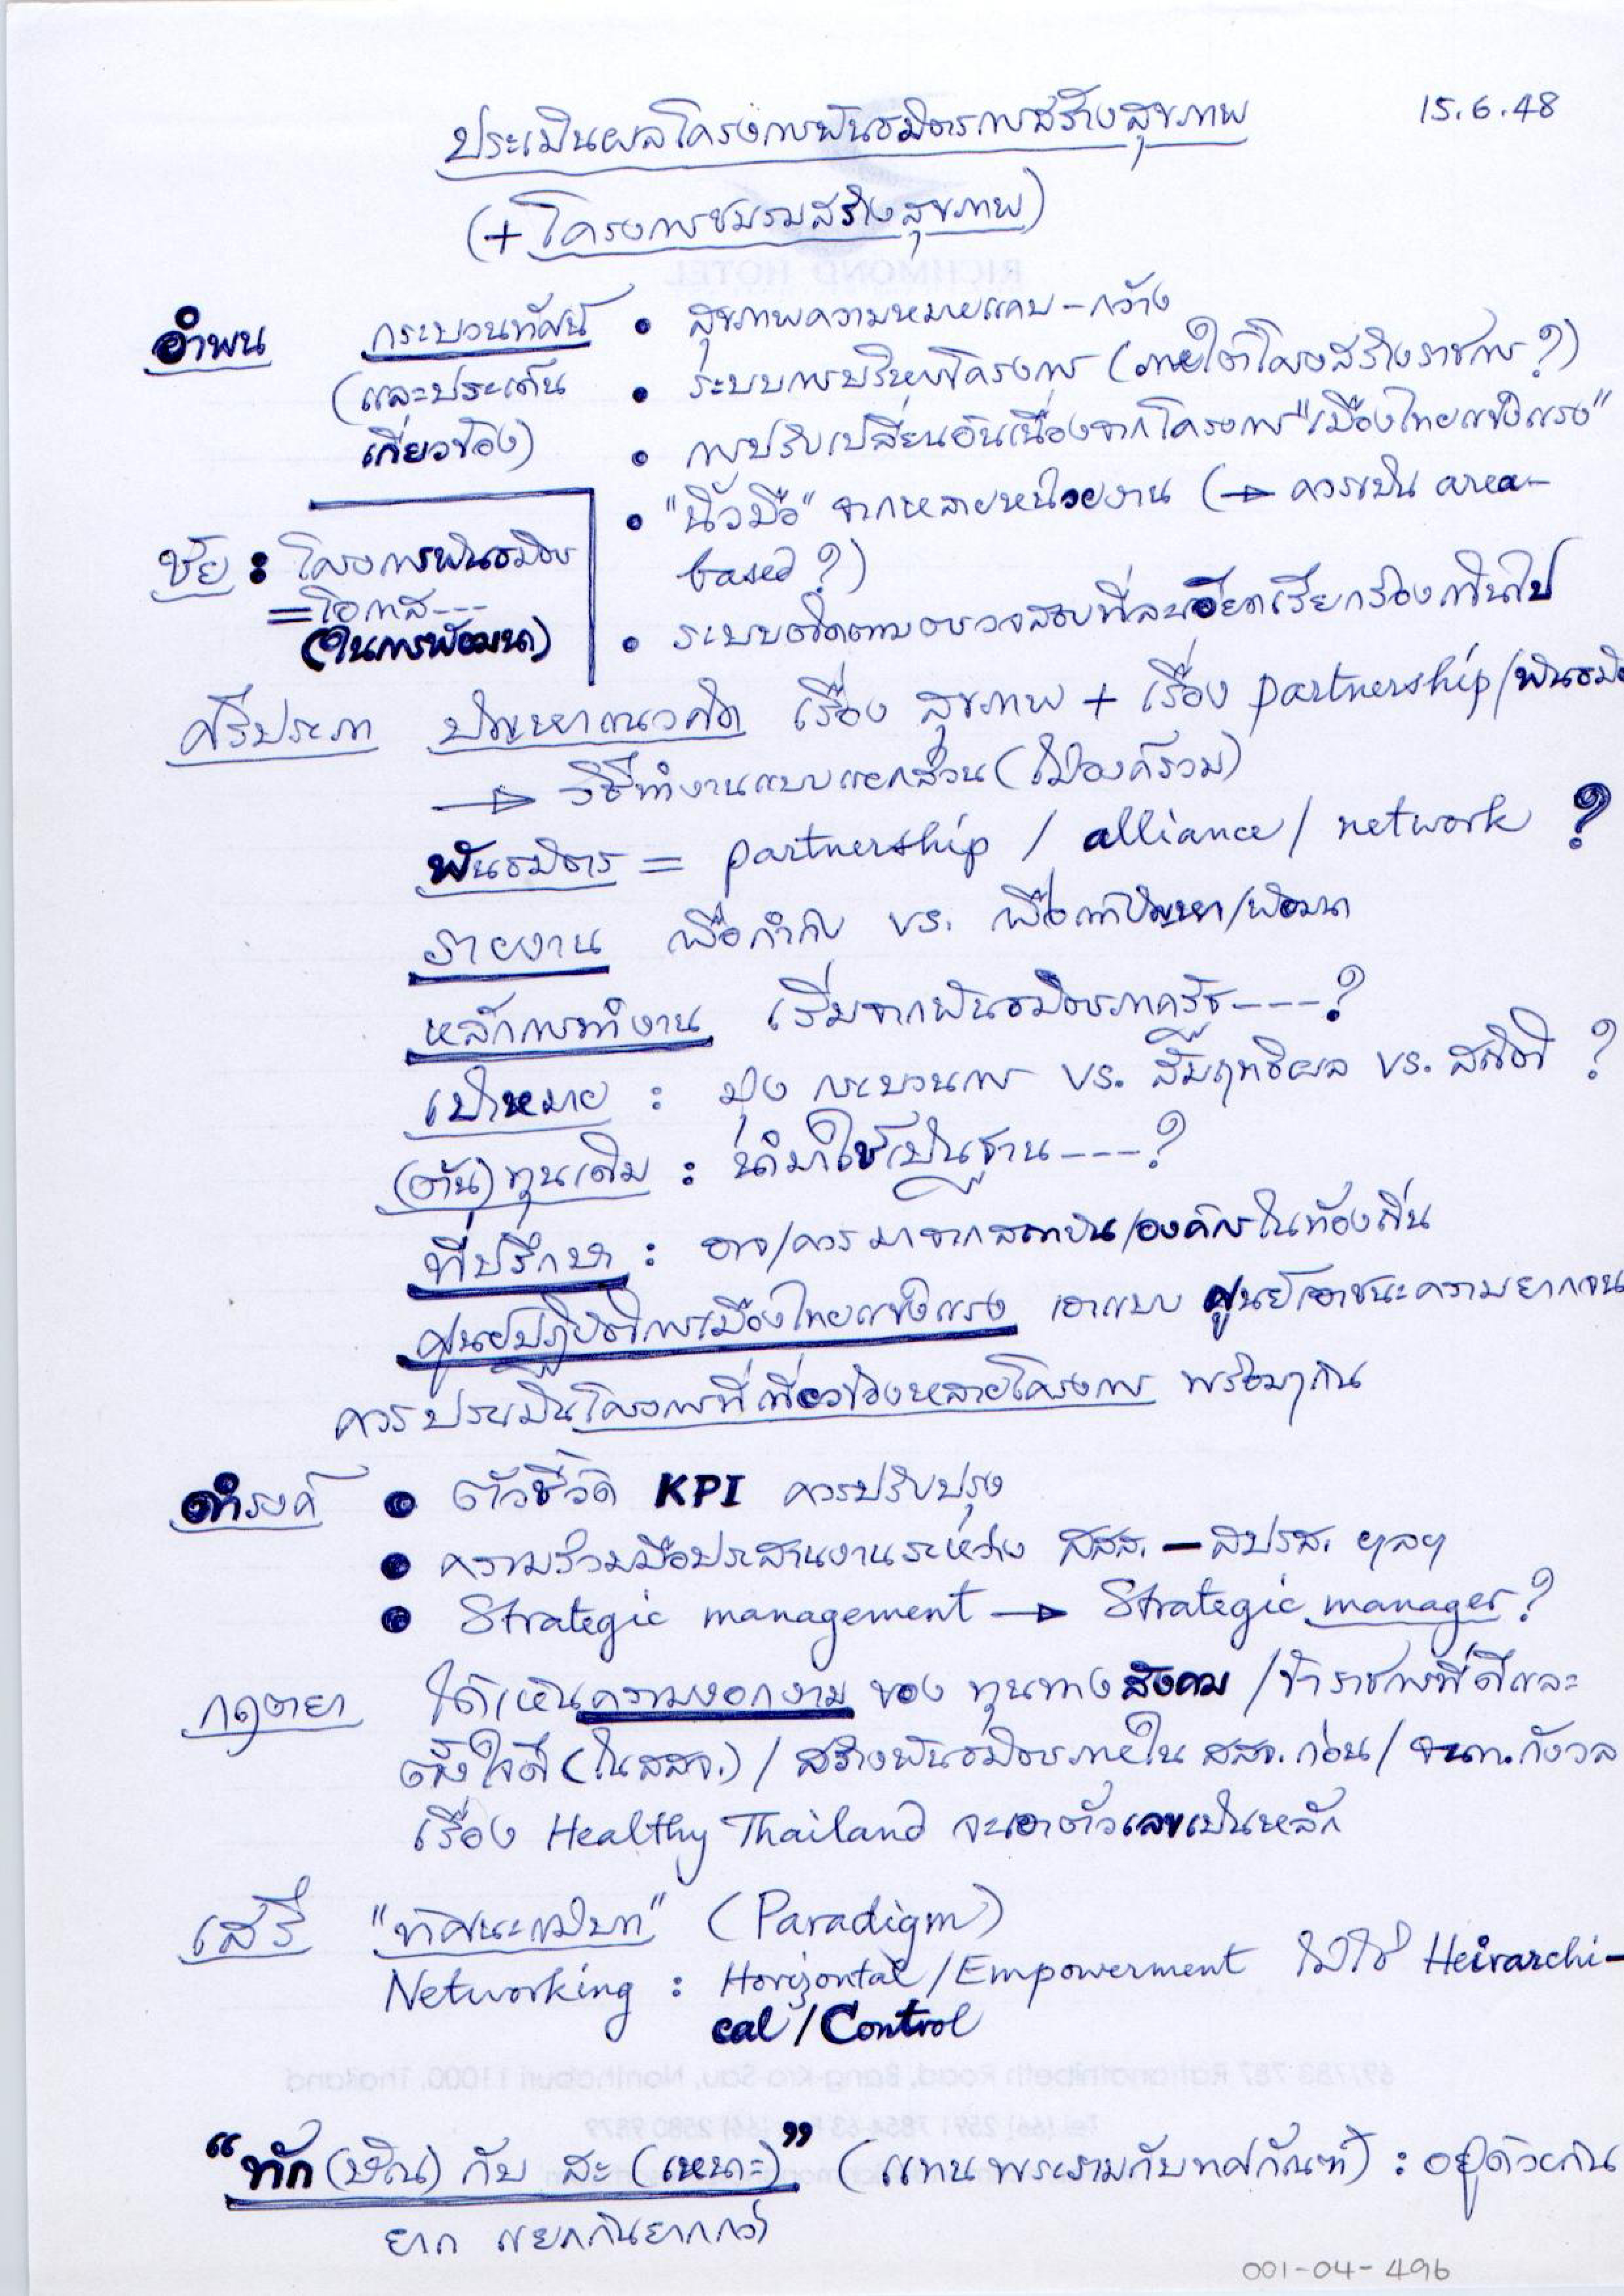 15.6.48
ประเมินผลโครงการพันธมิตรการสร้างสุขภาพ
(+ โครงการชมรมสร้างสุขภาพ)
RICHMOND HOTEL
อำพน กระบวนทัศน์ • สุขภาพความหมายแคบ – กว้าง
(และประเด็น • ระบบการบริหารโครงการ (ภายใต้โครงสร้างราชการ ?)
เกี่ยวข้อง) • การปรับเปลี่ยนอันเนื่องจากโครงการ "เมืองไทยแข็งแรง"
• "นิ้วมือ" จากหลายหน่วยงาน (→ ควรเป็น area-
based ?)
ชัย : โครงการพันธมิตร
= โอกาส ---
(ในการพัฒนา)
• ระบบติดตามตรวจสอบที่ละเอียดเรียกร้องเกินไป
ศรีประภา ปัญหาแนวคิด เรื่อง สุขภาพ + เรื่อง partnership/พันธมิ
→ วิธีทำงานแบบแยกส่วน (ไม่องค์รวม)
พันธมิตร = partnership / alliance / network ?
รายงาน เพื่อกำกับ vs. เพื่อแก้ปัญหา/พัฒนา
หลักการทำงาน เริ่มจากพันธมิตรภาครัฐ ---- ?
เป้าหมาย : มุ่ง กระบวนการ vs. สัมฤทธิผล vs. สถิติ ?
(ต้น) ทุนเดิม : นำมาใช้เป็นฐาน ---- ?
ที่ปรึกษา : อาจ/ควร มาจากสถาบัน/องค์กรในท้องถิ่น
ศูนย์ปฏิบัติการเมืองไทยแข็งแรง เอาแบบ ศูนย์เอาชนะความยากจน
ควรประเมินโครงการที่เกี่ยวข้องหลายโครงการ พร้อมๆกัน
ดำรงค์ • ตัวชี้วัด KPI ควรปรับปรุง
• ความร่วมมือประสานงานระหว่าง สสส. – สปรส. ฯลฯ
• Strategic management → Strategic manager ?
กฤตยา ได้เห็นความงอกงาม ของ ทุนทางสังคม / ข้าราชการที่ดีและ
ตั้งใจดี (ใน สสจ.) / สร้างพันธมิตรภายใน สสจ. ก่อน / จนท. กังวล
เรื่อง Healthy Thailand จะเอาตัวเลขเป็นหลัก
เสรี "ทัศนะแม่บท" (Paradigm)
Networking : Horizontal / Empowerment ไม่ใช่ Heirarchi-
cal / Control
69/783 787 Rattanathibeth Road, Bang-Kra-Sau, Nonthaburi 11000, Thailand
"ทัก (ษิณ) กับ สะ (เหนาะ)" (แทน พระรามกับทศกัณฑ์) : อยู่ด้วยกัน
ยาก แยกกันยากกว่า
001-04-496